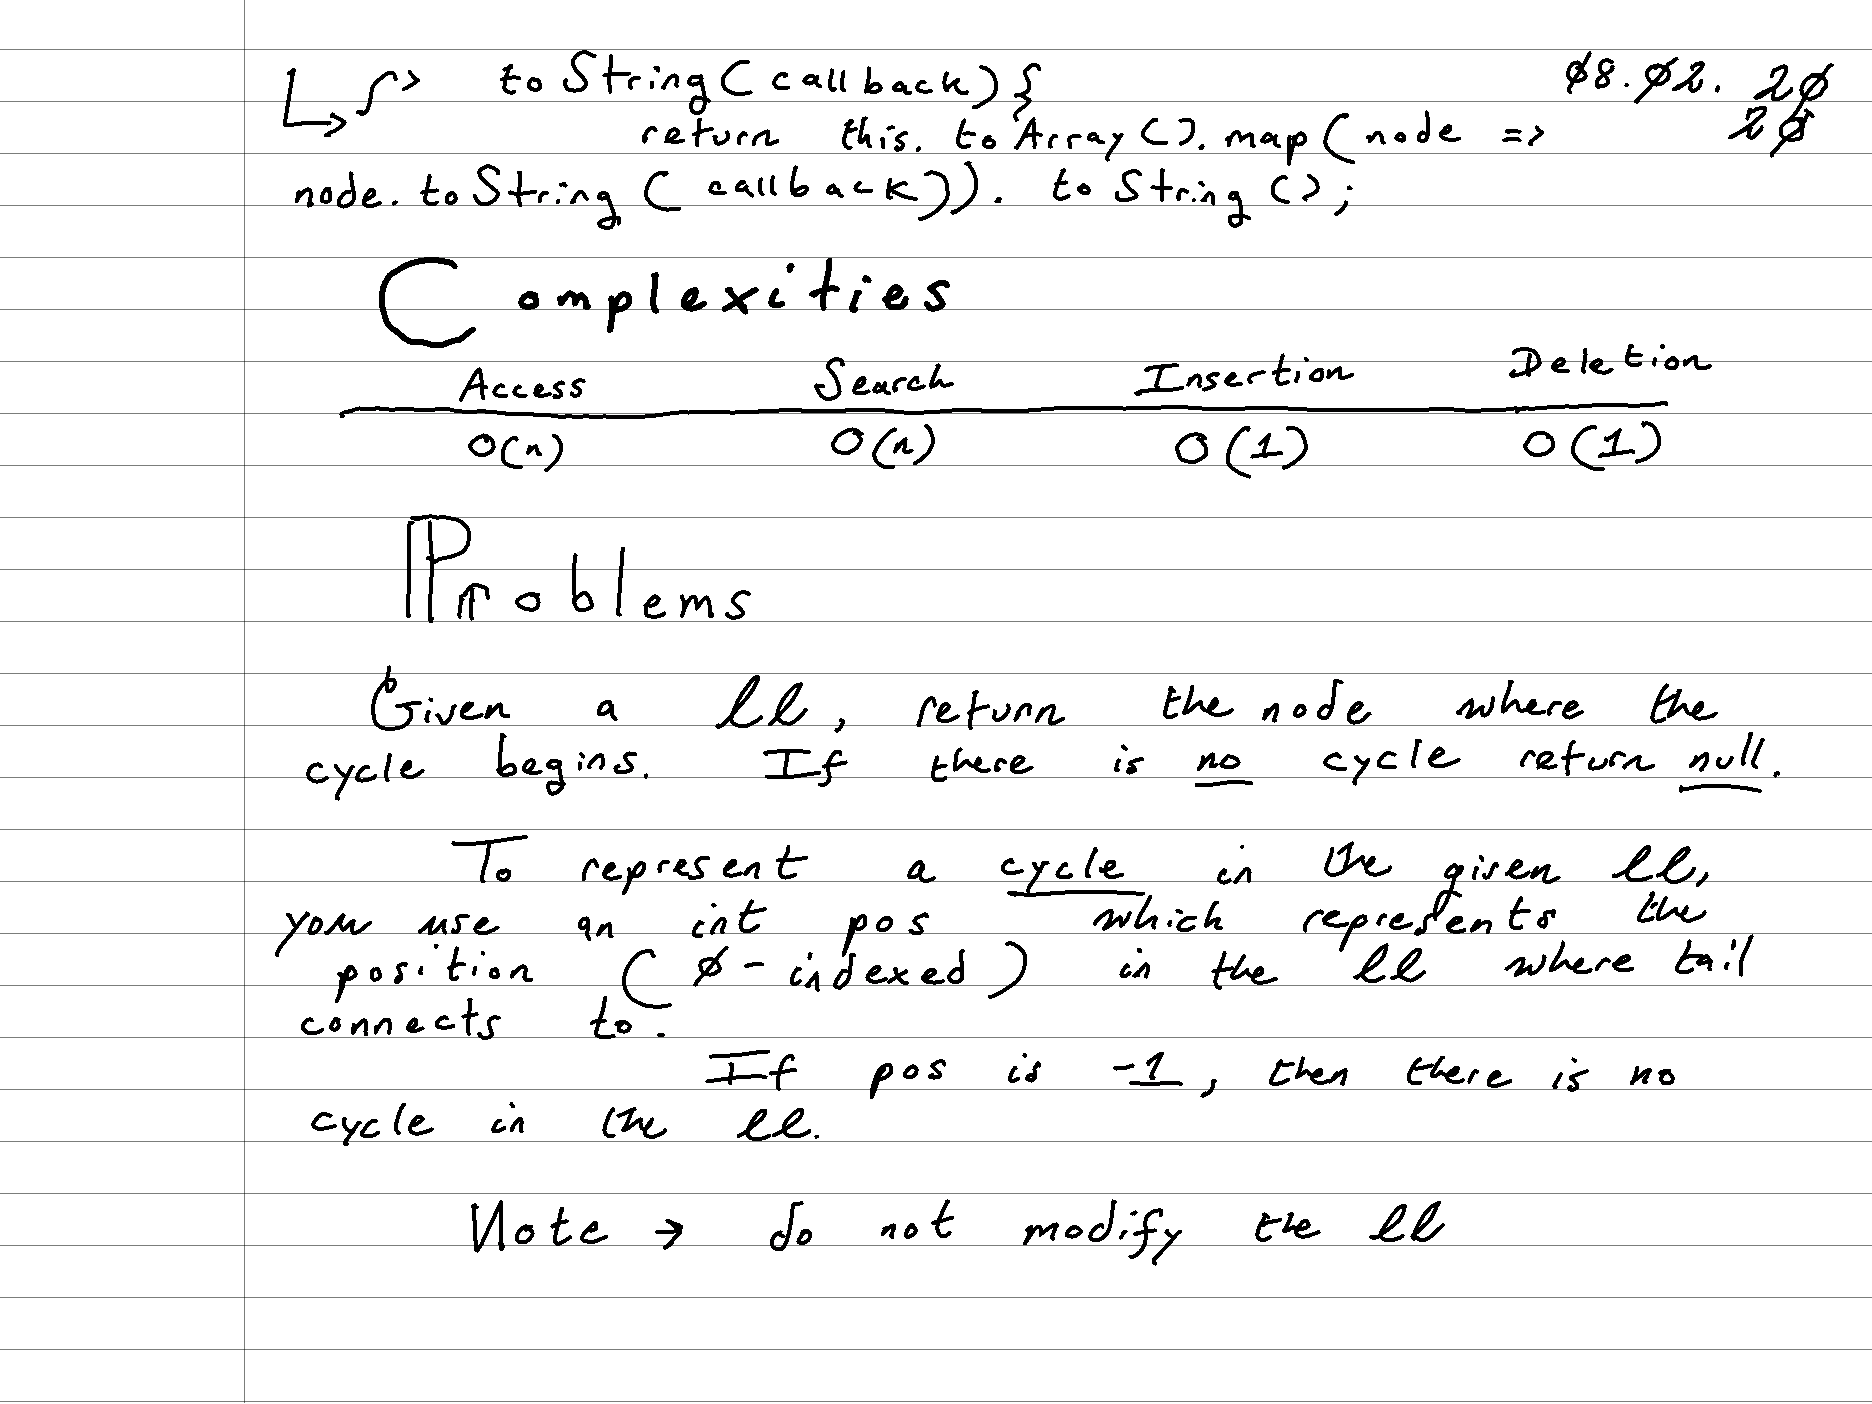 toString(callback){ ø8.ø2.2ø
return this.toArray().map(node => 2ø
node.toString(callback)).toString();
Complexities
Access Search Insertion Deletion
O(n) O(n) O(1) O(1)
Problems
Given a ll, return the node where the
cycle begins. If there is no cycle return null.
To represent a cycle in the given ll,
you use an int pos which represents the
position (ø-indexed) in the ll where tail
connects to.
If pos is -1, then there is no
cycle in the ll.
Note → do not modify the ll